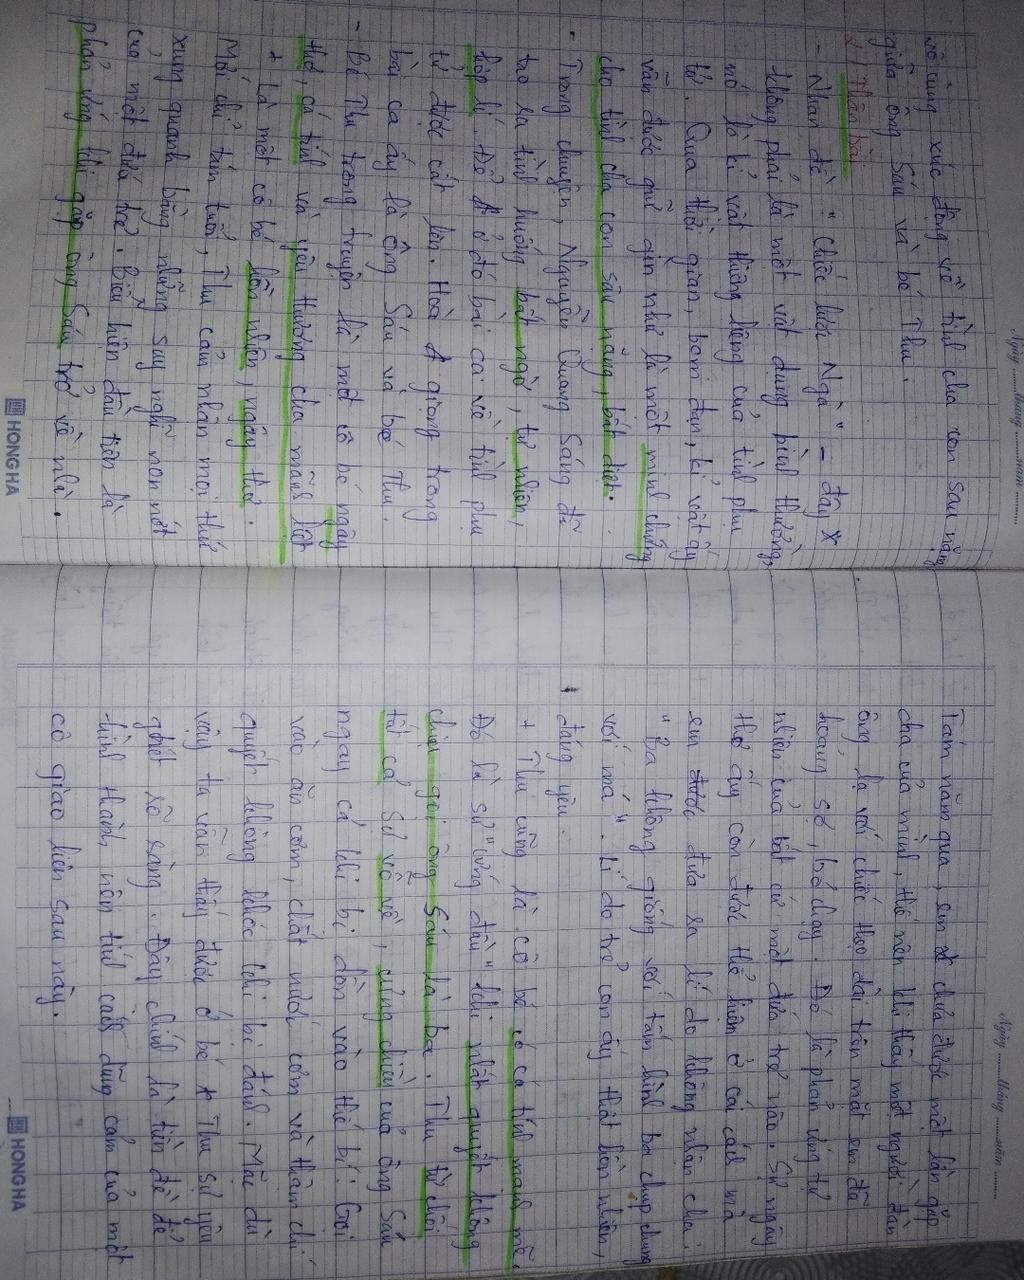 Ngày ........ tháng ........ năm ........
vô cùng xúc động về tình cha con sâu nặng
giữa ông Sáu và bé Thu.
2) Thân bài:
- Nhan đề " chiếc lược Ngà " - đây
không phải là một vật dụng bình thường,
nó là kỉ vật thiêng liêng của tình phụ
tử. Qua thời gian, bom đạn, kỉ vật ấy
vẫn được giữ gìn như là một minh chứng
cho tình cha con sâu nặng, bất diệt.
- Trong chuyện, Nguyễn Quang Sáng đã
tạo ra tình huống bất ngờ, tự nhiên,
hợp lí. Để ở đó bài ca về tình phụ
tử được cất lên. Hoà giọng trong
bài ca ấy là ông Sáu và bé Thu.
- Bé Thu trong truyện là một cô bé ngây
thơ, cá tính và yêu thương cha mãnh liệt
+ Là một cô bé hồn nhiên, ngây thơ.
Mới chỉ tám tuổi, Thu cảm nhận mọi thứ
xung quanh bằng những suy nghĩ non nớt
của một đứa trẻ. Biểu hiện đầu tiên là
phản ứng khi gặp ông Sáu trở về nhà.
HONG HA
Ngày ........ tháng ........ năm ........
Tám năm qua, em chưa được một lần gặp
cha của mình, thế nên khi thấy một người đàn
ông lạ với chiếc thẹo dài trên mặt em đã
hoảng sợ, bỏ chạy. Đó là phản ứng tự
nhiên của bất cứ một đứa trẻ nào. Sự ngây
thơ ấy còn được thể hiện ở cái cách mà
em được đưa ra lí do không nhận cha:
" Ba không giống với tấm hình ba chụp chung
với má ". Lí do trẻ con ấy thật hồn nhiên,
đáng yêu.
+ Thu cũng là cô bé có cá tính mạnh mẽ.
Đó là sự "cứng đầu" khi nhất quyết không
chịu gọi ông Sáu là ba. Thu từ chối
tất cả sự vỗ về, cưng chiều của ông Sáu
ngay cả khi bị dồn vào thế bí: Gọi
vào ăn cơm, chắt nước cơm và thậm chí
quyết không khóc khi bị đánh. Mặc dù
vậy ta vẫn thấy được ở bé Thu sự yêu
ghét rõ ràng. Đây chính là tiền đề để
hình thành nên tính cách dũng cảm của một
cô giao liên sau này.
HONG HA